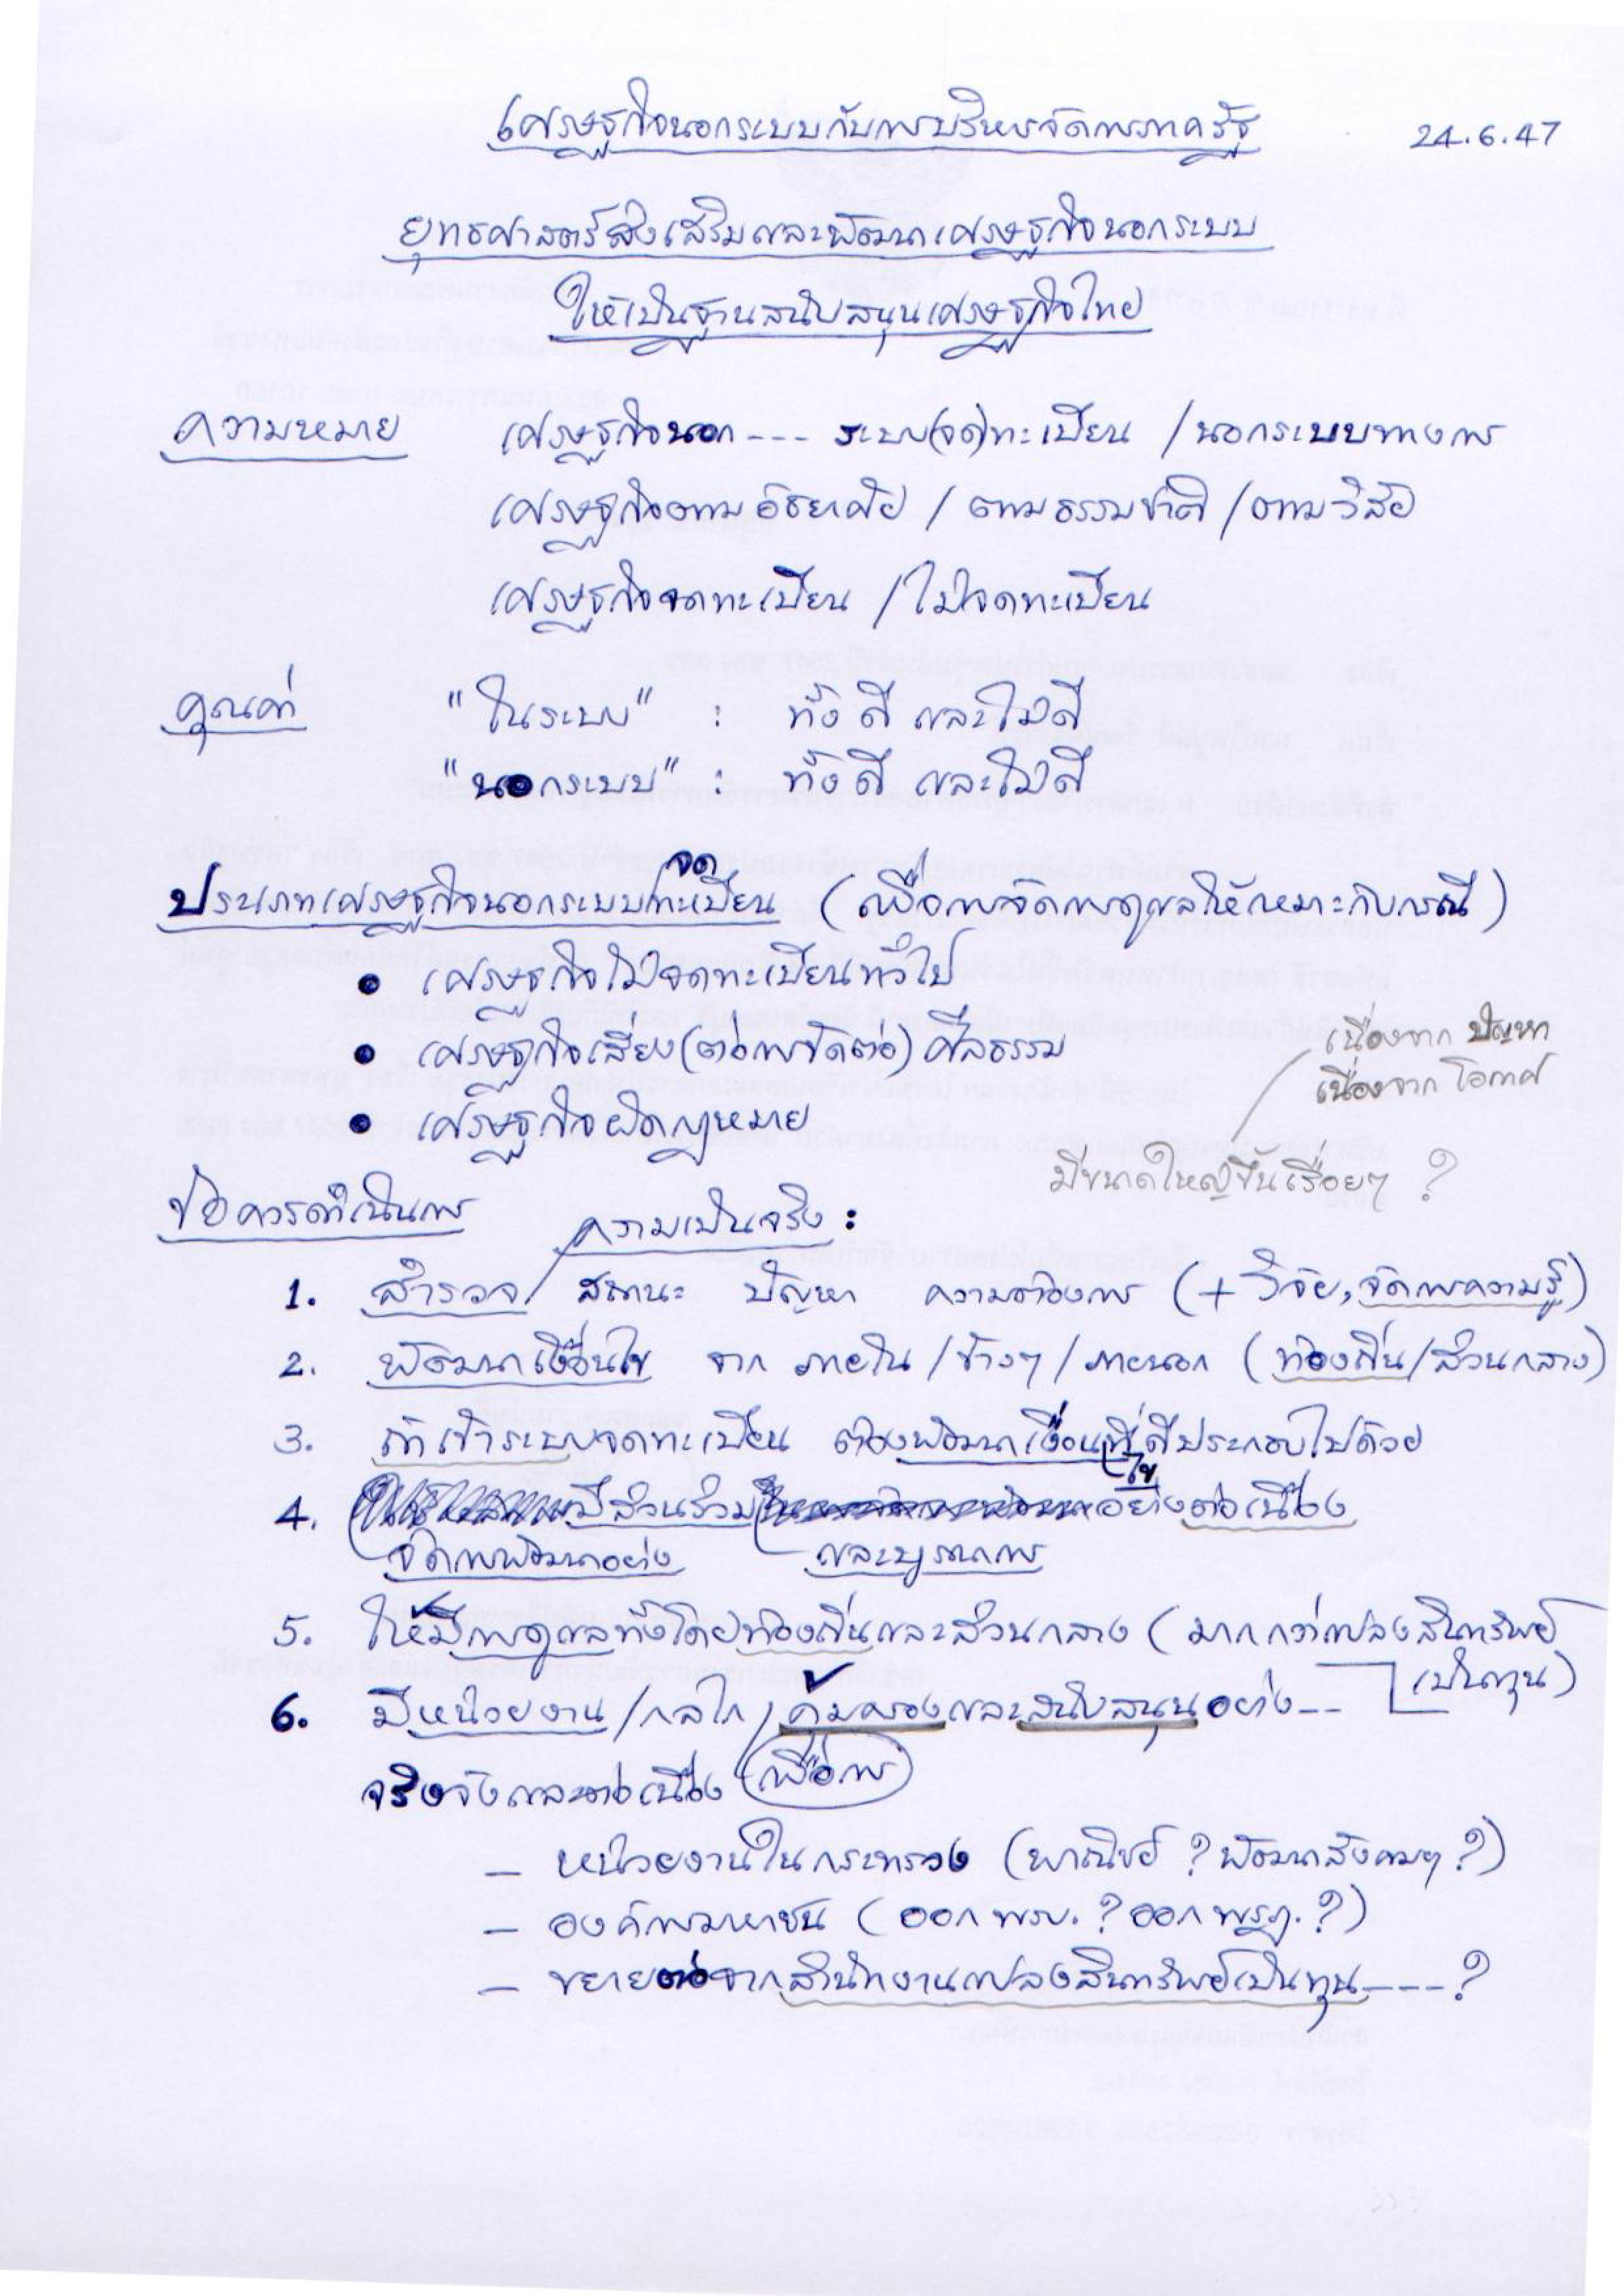 เศรษฐกิจนอกระบบกับการบริหารจัดการภาครัฐ 24.6.47
ยุทธศาสตร์ส่งเสริมและพัฒนาเศรษฐกิจนอกระบบ
ให้เป็นฐานสนับสนุนเศรษฐกิจไทย
ความหมาย เศรษฐกิจนอก --- ระบบ(จด)ทะเบียน / นอกระบบทางการ
เศรษฐกิจตามอัธยาศัย / ตามธรรมชาติ / ตามวิสัย
เศรษฐกิจจดทะเบียน / ไม่จดทะเบียน
คุณค่า "ในระบบ" : ทั้งดี และไม่ดี
"นอกระบบ" : ทั้งดี และไม่ดี
ประเภทเศรษฐกิจนอกระบบจดทะเบียน (เพื่อการจัดการดูแลให้เหมาะกับกรณี)
• เศรษฐกิจไม่จดทะเบียนทั่วไป
• เศรษฐกิจเสี่ยง(ต่อการขัดต่อ)ศีลธรรม
เนื่องจาก ปัญหา
เนื่องจาก โอกาศ
• เศรษฐกิจผิดกฎหมาย
มีขนาดใหญ่ขึ้นเรื่อยๆ ?
ข้อควรดำเนินการ
ความเป็นจริง :
1. สำรวจ สถานะ ปัญหา ความต้องการ (+ วิจัย, จัดการความรู้)
2. พัฒนาเงื่อนไข จาก ภายใน / ข้างๆ / ภายนอก (ท้องถิ่น / ส่วนกลาง)
3. ถ้าเข้าระบบจดทะเบียน ต้องพัฒนาเงื่อนไขที่ดีประกอบไปด้วย
4. จัดการพัฒนาอย่างมีส่วนร่วมและบูรณาการอย่างต่อเนื่อง
5. ให้มีการดูแลทั้งโดยท้องถิ่นและส่วนกลาง (มากกว่าแปลงสินทรัพย์
เป็นทุน)
6. มีหน่วยงาน / กลไก เพื่อการคุ้มครองและสนับสนุนอย่าง --
จริงจังและต่อเนื่อง
- หน่วยงานในกระทรวง (พาณิชย์ ? พัฒนาสังคมฯ ?)
- องค์การมหาชน (ออก พรบ. ? ออก พรฎ. ?)
- ขยายต่อจากสำนักงานแปลงสินทรัพย์เป็นทุน ---- ?